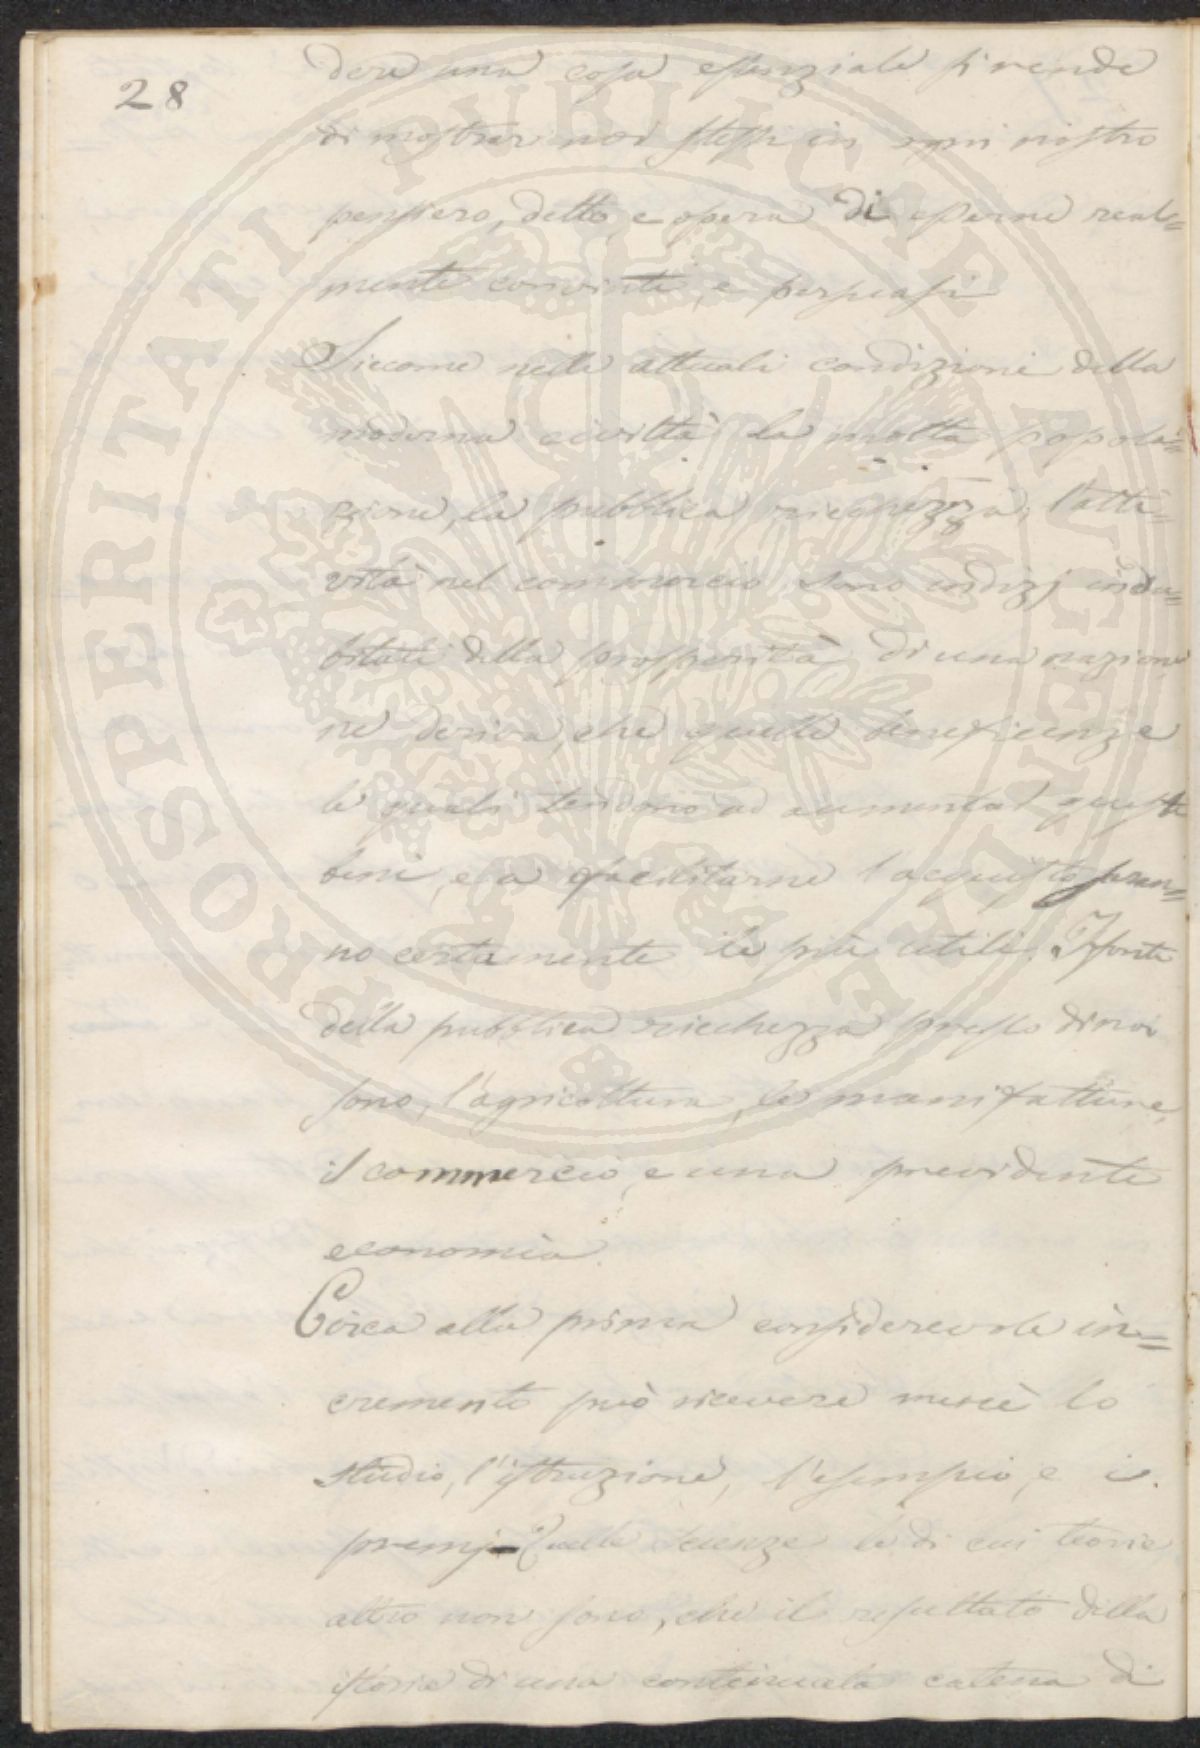 28
dere una cosa essenziale si rende
di mostrar noi stessi in ogni nostro
pensiero, detto, e opera di esserne real=
mente convinti, e persuasi
Siccome nelle attuali condizioni della
moderna civiltà la molta popola=
zione, la pubblica ricchezza, l'atti=
vità nel commercio sono indizj indu=
bitati della prosperità di una nazione
ne deriva, che quelle beneficenze
le quali tendono ad aumentar questi
beni, e a facilitarne l'acquisto saran=
no certamente le più utili. I fonti
della pubblica ricchezza presso di noi
sono, l'agricoltura, le manifatture,
il commercio, e una previdente
economia.
Circa alla prima considerevole in=
cremento può ricevere mercè lo
studio, l'istruzione, l'esempio, e i
premj - Quelle scienze le di cui teorie
altro non sono, che il resultato della
istoria di una continuata catena di
PROSPERITATI PUBLICAE AUGENDAE